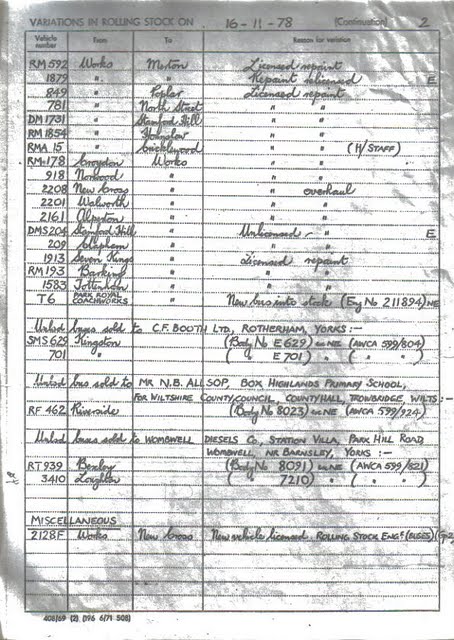 VARIATIONS IN ROLLING STOCK ON 16-11-78 (Continuation) 2
Vehicle number From To Reason for variation
RM 592 Works Merton Licensed repaint
1879 " " Repaint relicensed E
849 " Poplar Licensed repaint
781 " North Street " "
DM 1731 " Stamford Hill " "
RM 1854 " Hounslow " "
RMA 15 " Cricklewood " " (H/STAFF)
RM 178 Croydon Works " "
918 Norwood " " "
2208 New Cross " " overhaul
2201 Walworth " " "
2161 Alperton " " "
DMS 204 Stamford Hill " Unlicensed - " E
209 Clapham " " "
1913 Seven Kings " Licensed repaint
RM 193 Barking " " "
1583 Tottenham " " "
T6 PARK ROYAL COACHWORKS " New bus into stock (Eng No 211894) NE
Unlsd buses sold to C.F. BOOTH LTD, ROTHERHAM, YORKS :-
SMS 629 Kingston (Body No E 629) NE (AWCA 599/804)
701 " ( " E 701) " ( " " )
Unlsd bus sold to MR N.B. ALLSOP, BOX HIGHLANDS PRIMARY SCHOOL,
FOR WILTSHIRE COUNTY COUNCIL, COUNTY HALL, TROWBRIDGE, WILTS :-
RF 462 Riverside (Body No 8023) NE (AWCA 599/924)
Unlsd buses sold to WOMBWELL DIESELS Co, STATION VILLA, PARK HILL ROAD,
WOMBWELL, NR BARNSLEY, YORKS :-
RT 939 Bexley (Body No 8091) NE (AWCA 599/821)
3410 Loughton ( " 7210) " ( " " )
MISCELLANEOUS
2128F Works New Cross New vehicle licensed. ROLLING STOCK ENGR (BUSES)
408/69 (2) (196 6/71 SOB)